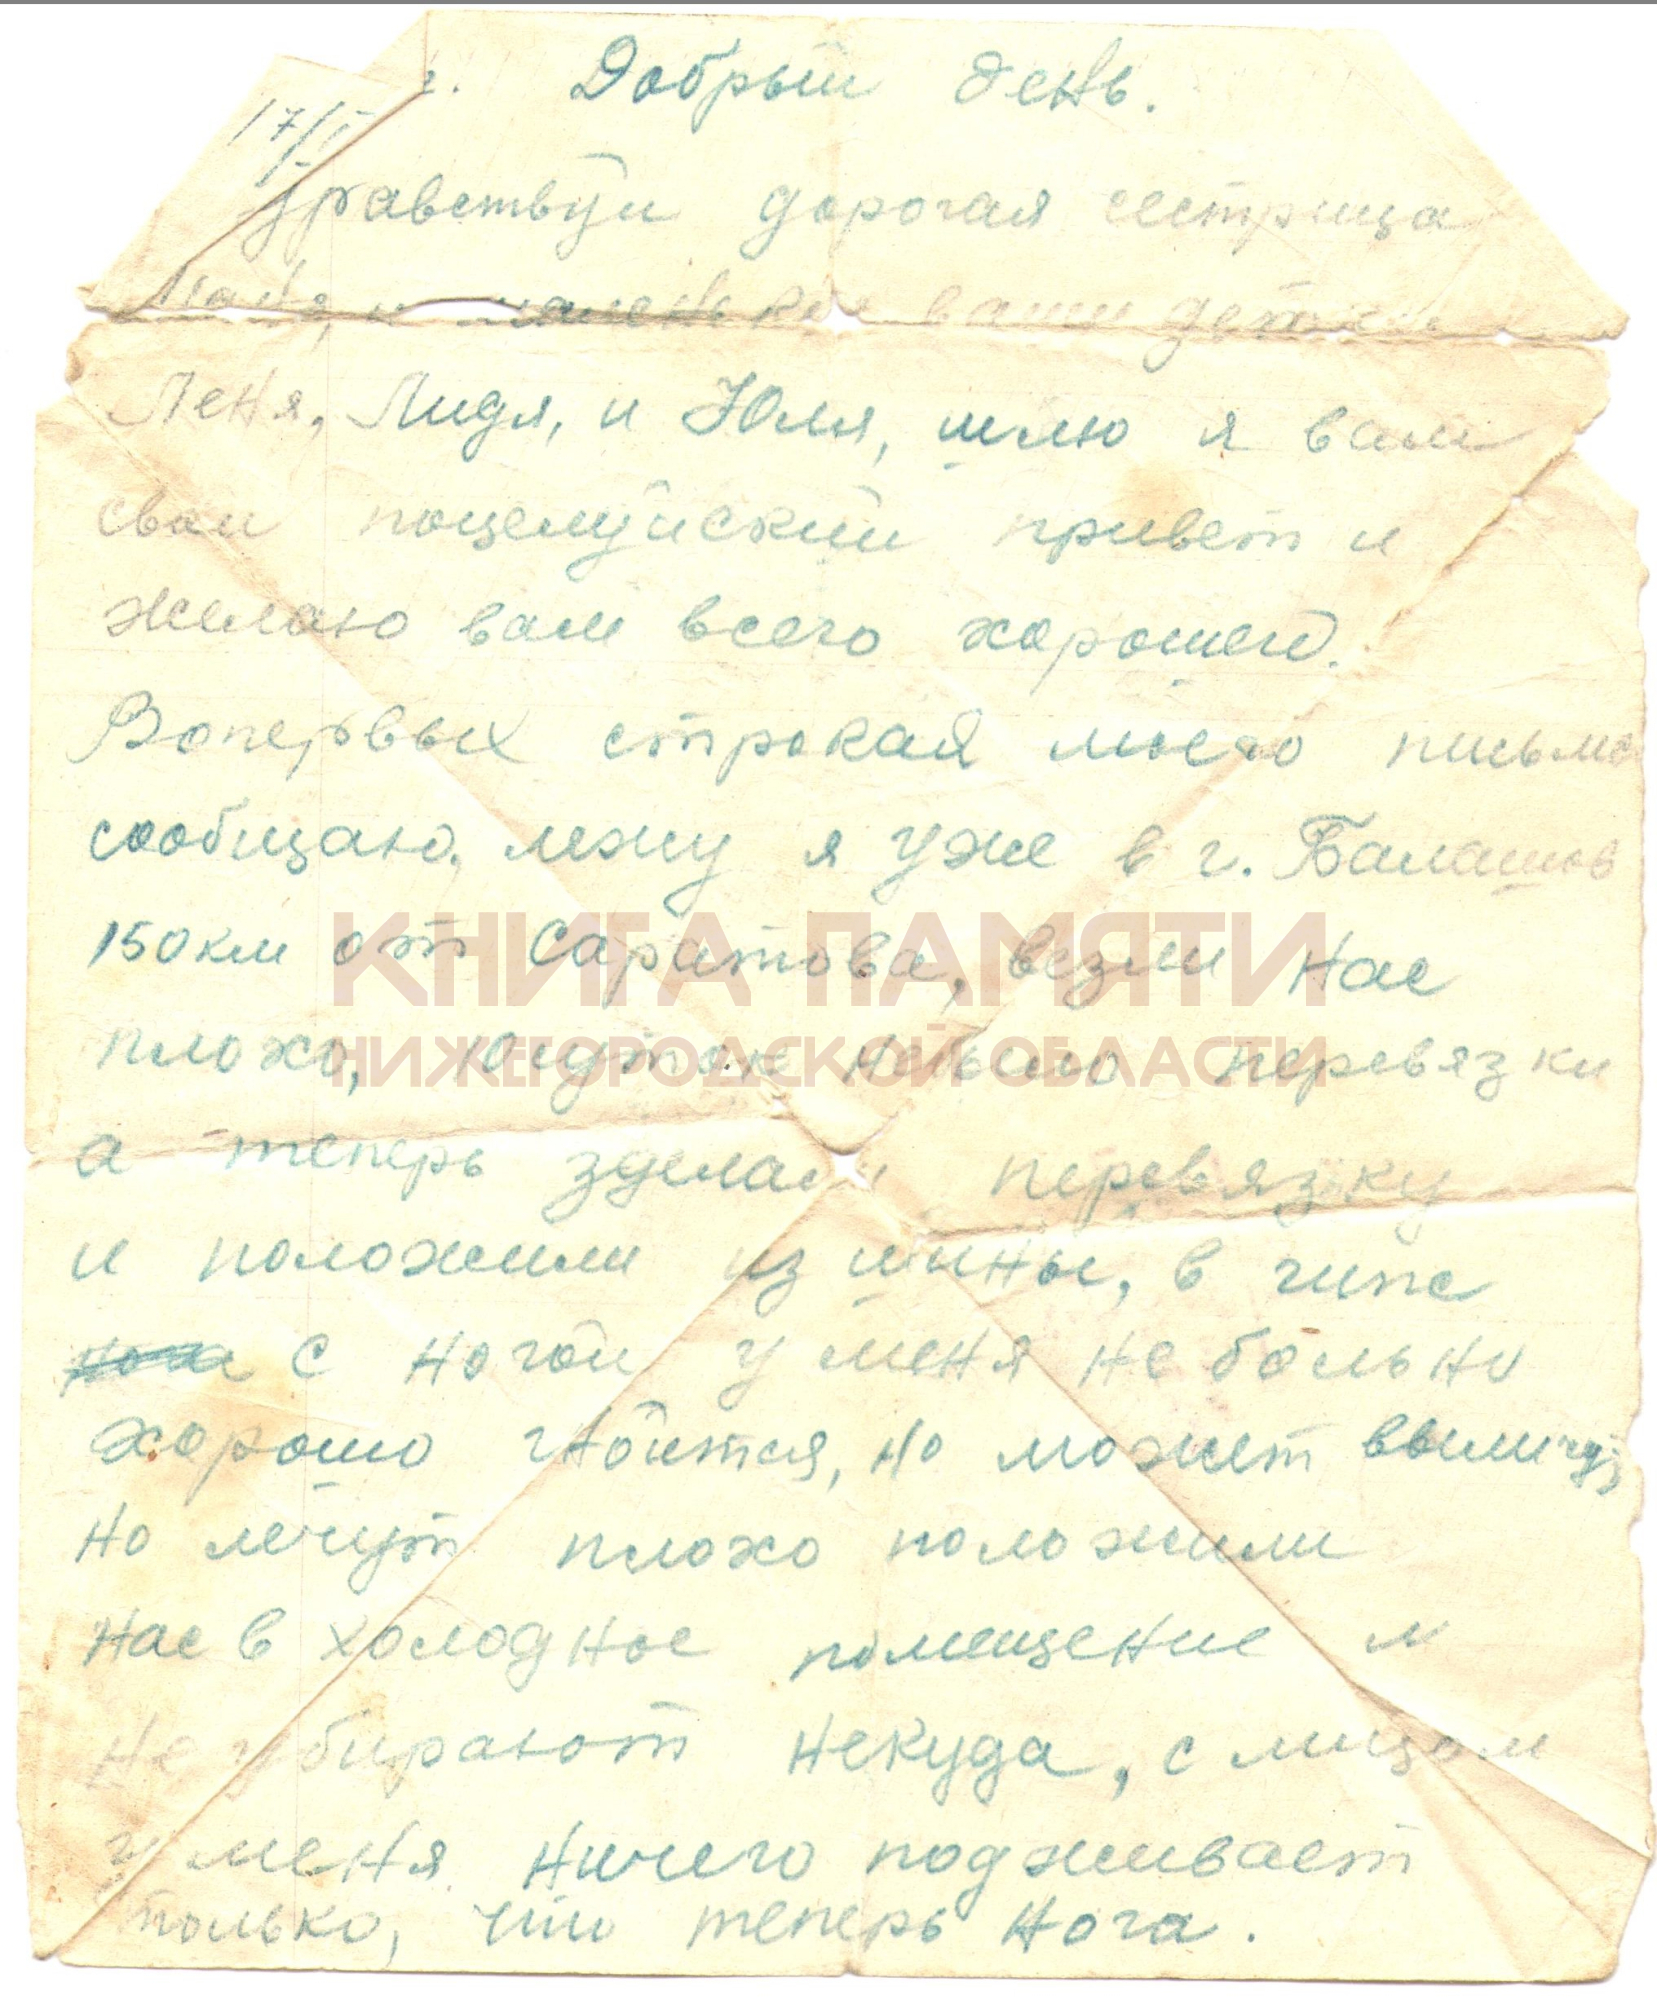 г. Добрый день.
17/I
Здравствуй дорогая сестрица
и маленькие ваши детки
Леня, Лидя, и Юля, шлю я вам
свой поцелуйский привет и
желаю вам всего хорошего.
Вопервых строкая моего письма
сообщаю, лежу я уже в г. Балашов
150км от Саратова, везли нас
КНИГА ПАМЯТИ
плохо, 10 суток небыло перевязки
НИЖЕГОРОДСКОЙ ОБЛАСТИ
а теперь зделали перевязку
и положили из шины, в гипс
с ногой у меня не больно
хорошо гноится, но может вылечу,
но лечут плохо положили
нас в холодное помещение и
не убирают некуда, с лицом
у меня ничего подживает
только, что теперь нога.